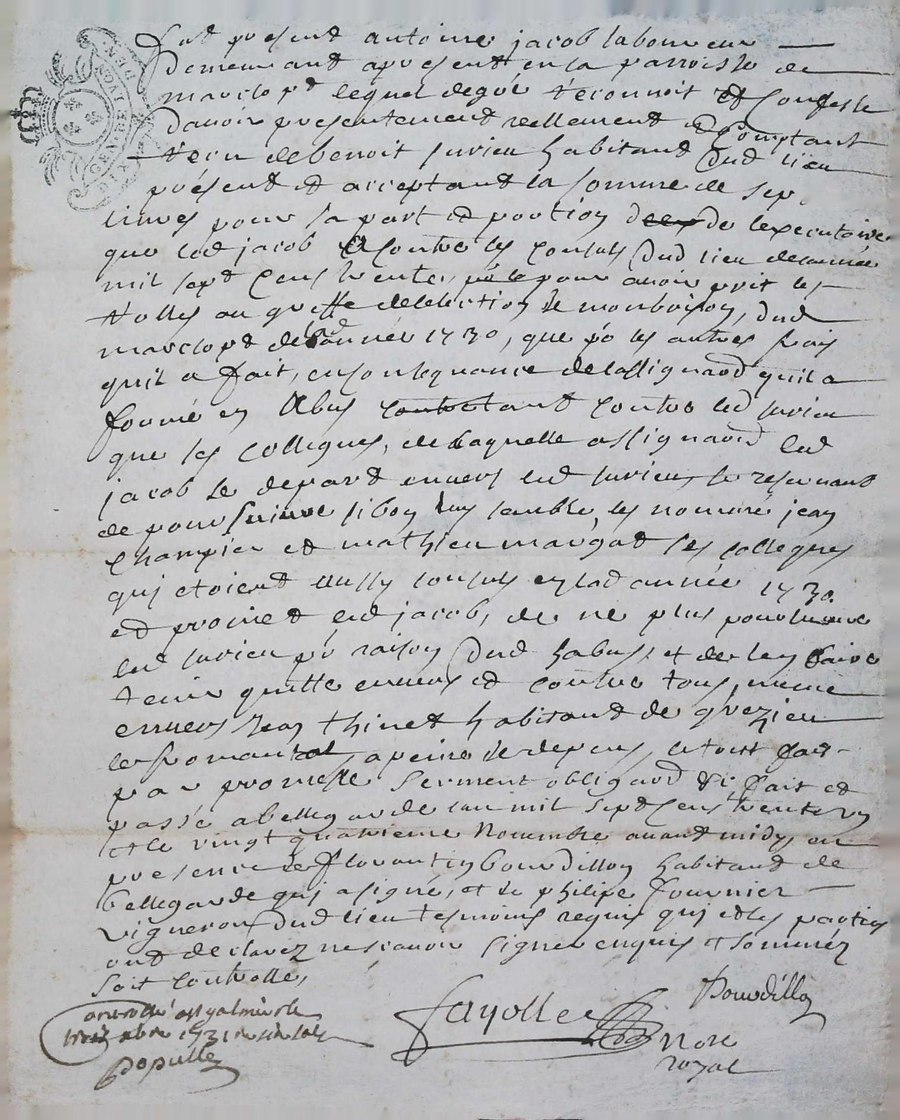 GEN DE LYON
GENERALITE
Fut présent antoine jacob laboureur
demeurant apresent en la parroisse de
marclopt lequel de gré reconnoit et confesse
davoir présentement reellement et comptant
receu de benoit jurieu habitand dud lieu
présent et acceptant la somme de sept
livres pour sa part et portion de lexecutoire
que led jacob a contre les consuls dud lieu de lannée
mil sept cens trente, pour avoir prit les
rolles au greffe de lelection de monbrison, dud
marclopt de lad année 1730, que pr les autres frais
quil a fait, en consequance de lassignaôn quil a
formé en abus contre led jurieu
que ses collegues, de laquelle assignaôn led
jacob se depart envers led jurieu, se reservant
de poursuivre si bon luy semble les nommé jean
Champier et mathieu margat ses collegues
qui etoient aussy consuls en lad année 1730.
et promet led jacob, de ne plus poursuivre
led jurieu pr raison dud habus, et de len faire
tenir quitte envers et contre tous, meme
envers jean thinet habitand de grezieu
le fromental, a peine de depens, le tout fait
par promesse serment obligaôn &c fait et
passé a bellegarde lan mil sept cens trente un
et le vingt quatrieme novembre avant midy en
presence de florantin bourdillon habitand de
bellegarde qui a signé, et de philipe fournier
vigneron dud lieu tesmoins requis qui et les parties
ont declarez ne scavoir signer enquis et sommez
soit controllé,
Bourdillon
fayolle
Nore
royal
controllé a st galmier le
9bre 1731
populle